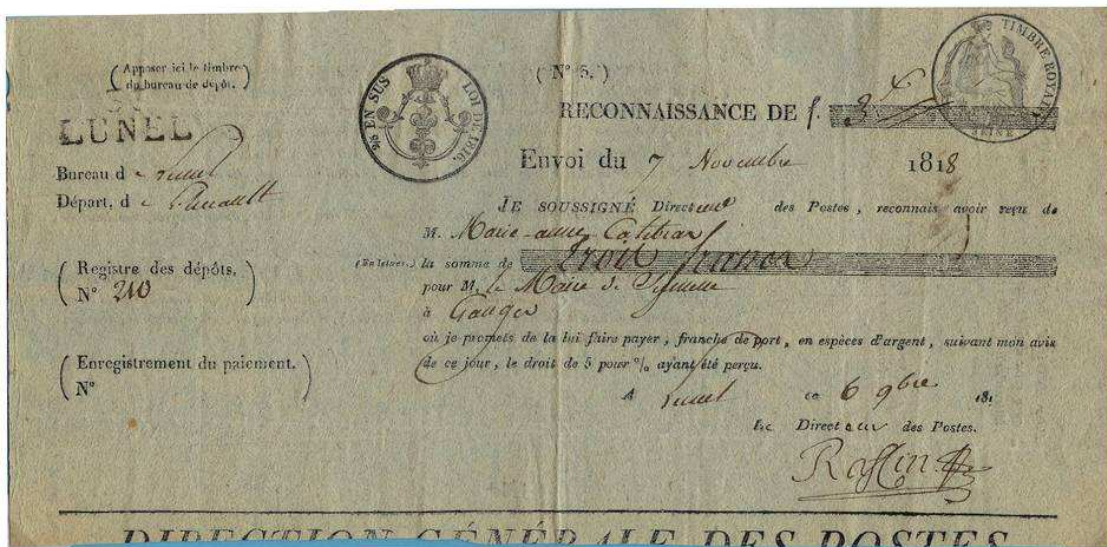 ( Apposer ici le timbre
du bureau de dépôt. )
LUNEL
Bureau d e Lunel
Départ. d e l'hérault
( Registre des dépôts.
N° 210 )
( Enregistrement du paiement.
N° )
2/10 EN SUS LOI DE 1816.
TIMBRE ROYAL
SEINE
( N° 5. )
RECONNAISSANCE DE f. 3
Envoi du 7 Novembre 1818
JE SOUSSIGNÉ Directeur des Postes, reconnais avoir reçu de
M. Marie-anne
(En lettres.) la somme de trois francs
pour M. le Maire de
à Ganges
où je promets de la lui faire payer, franche de port, en espèces d'argent, suivant mon avis
de ce jour, le droit de 5 pour % ayant été perçu.
A Lunel ce 6 9bre 181
Le Directeur des Postes.
DIRECTION GÉNÉRALE DES POSTES